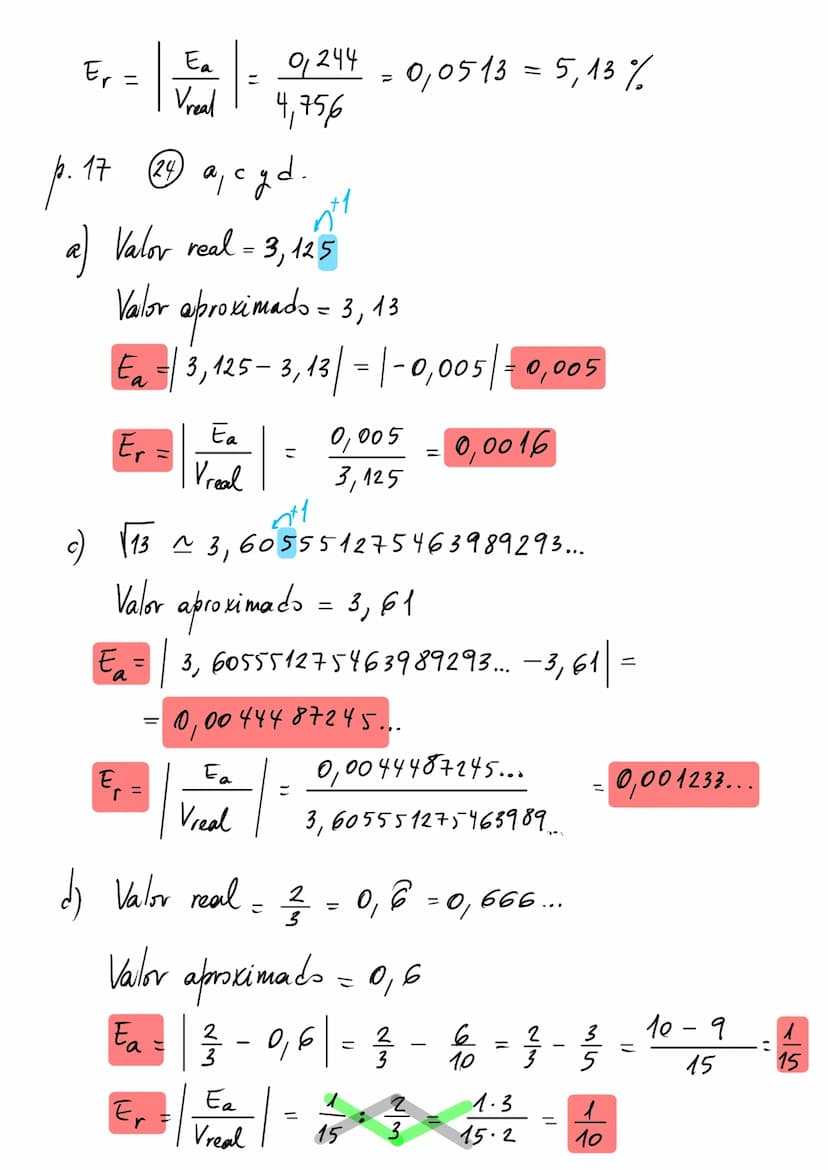 E_r = |E_a / V_real| = 0,244 / 4,756 = 0,0513 = 5,13 %
p. 17 (24) a, c y d.
+1
a) Valor real = 3,125
Valor aproximado = 3,13
E_a = |3,125 - 3,13| = |-0,005| = 0,005
E_r = |E_a / V_real| = 0,005 / 3,125 = 0,0016
+1
c) √13 ≃ 3,605551275463989293...
Valor aproximado = 3,61
E_a = |3,605551275463989293... - 3,61| =
= 0,0044487245...
E_r = |E_a / V_real| = 0,0044487245... / 3,605551275463989... = 0,001233...
d) Valor real = 2/3 = 0,6̂ = 0,666...
Valor aproximado = 0,6
E_a = |2/3 - 0,6| = 2/3 - 6/10 = 2/3 - 3/5 = (10 - 9)/15 = 1/15
E_r = |E_a / V_real| = 1/15 : 2/3 = (1·3)/(15·2) = 1/10